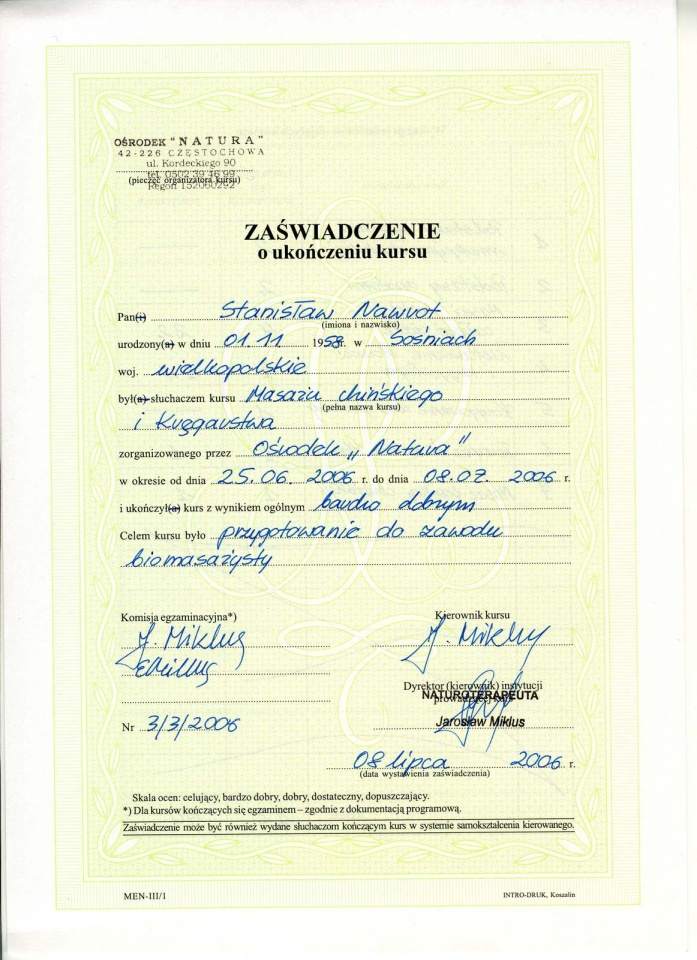 OŚRODEK "NATURA"
42-226 CZĘSTOCHOWA
ul. Kordeckiego 90
tel. 0502 39 46 99
(pieczęć organizatora kursu)
Regon 152060292
ZAŚWIADCZENIE
o ukończeniu kursu
Pan(i) Stanisław Nawrot
(imiona i nazwisko)
urodzony(a) w dniu 01.11 1958r. w Sośniach
woj. wielkopolskie
był(a) słuchaczem kursu Masażu chińskiego
(pełna nazwa kursu)
i Kręgarstwa
zorganizowanego przez Ośrodek „Natura"
w okresie od dnia 25.06. 2006 r. do dnia 08.07. 2006 r.
i ukończył(a) kurs z wynikiem ogólnym bardzo dobrym
Celem kursu było przygotowanie do zawodu
biomasażysty
Komisja egzaminacyjna*) Kierownik kursu
J. Miklus J. Miklus
Dyrektor (kierownik) instytucji
prowadzącej kurs
NATUROTERAPEUTA
Nr 3/3/2006 Jarosław Miklus
08 lipca 2006 r.
(data wystawienia zaświadczenia)
Skala ocen: celujący, bardzo dobry, dobry, dostateczny, dopuszczający.
*) Dla kursów kończących się egzaminem – zgodnie z dokumentacją programową.
Zaświadczenie może być również wydane słuchaczom kończącym kurs w systemie samokształcenia kierowanego.
MEN-III/1 INTRO-DRUK, Koszalin